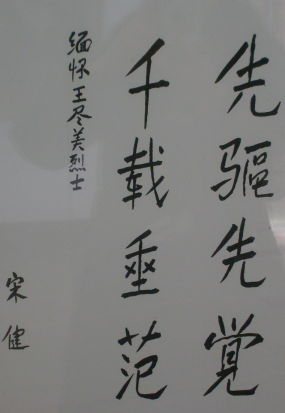 先驱先觉
千载垂范
缅怀王尽美烈士
宋健